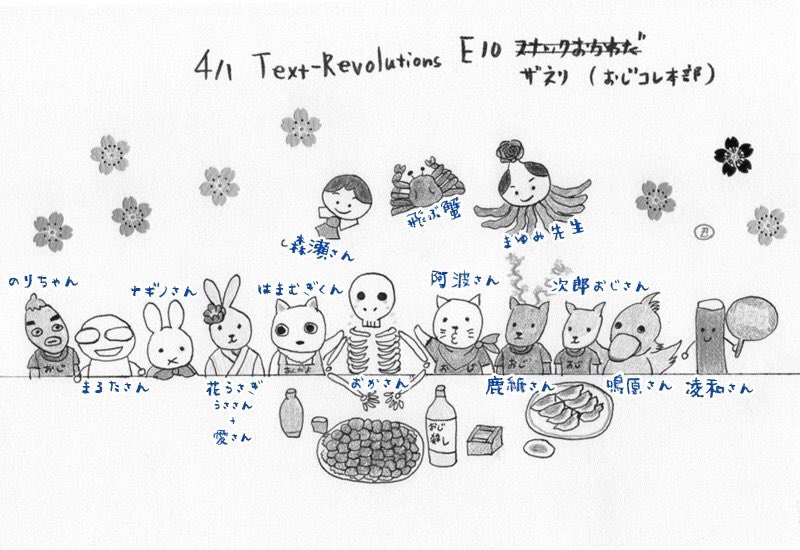 4/1 Text-Revolutions E10 スナックおちわだ
ザネリ (おじコレ本部)
森瀬さん
飛ぶ蟹
まゆみ先生
のりちゃん
ナギノさん
はまむぎくん
阿波さん
次郎おじさん
おじ
おじ
おじ
おじ
まるたさん
花うさぎ
うささん
+
愛さん
おかざん
鹿紙さん
鳴原さん
凌和さん
おじ
殺し